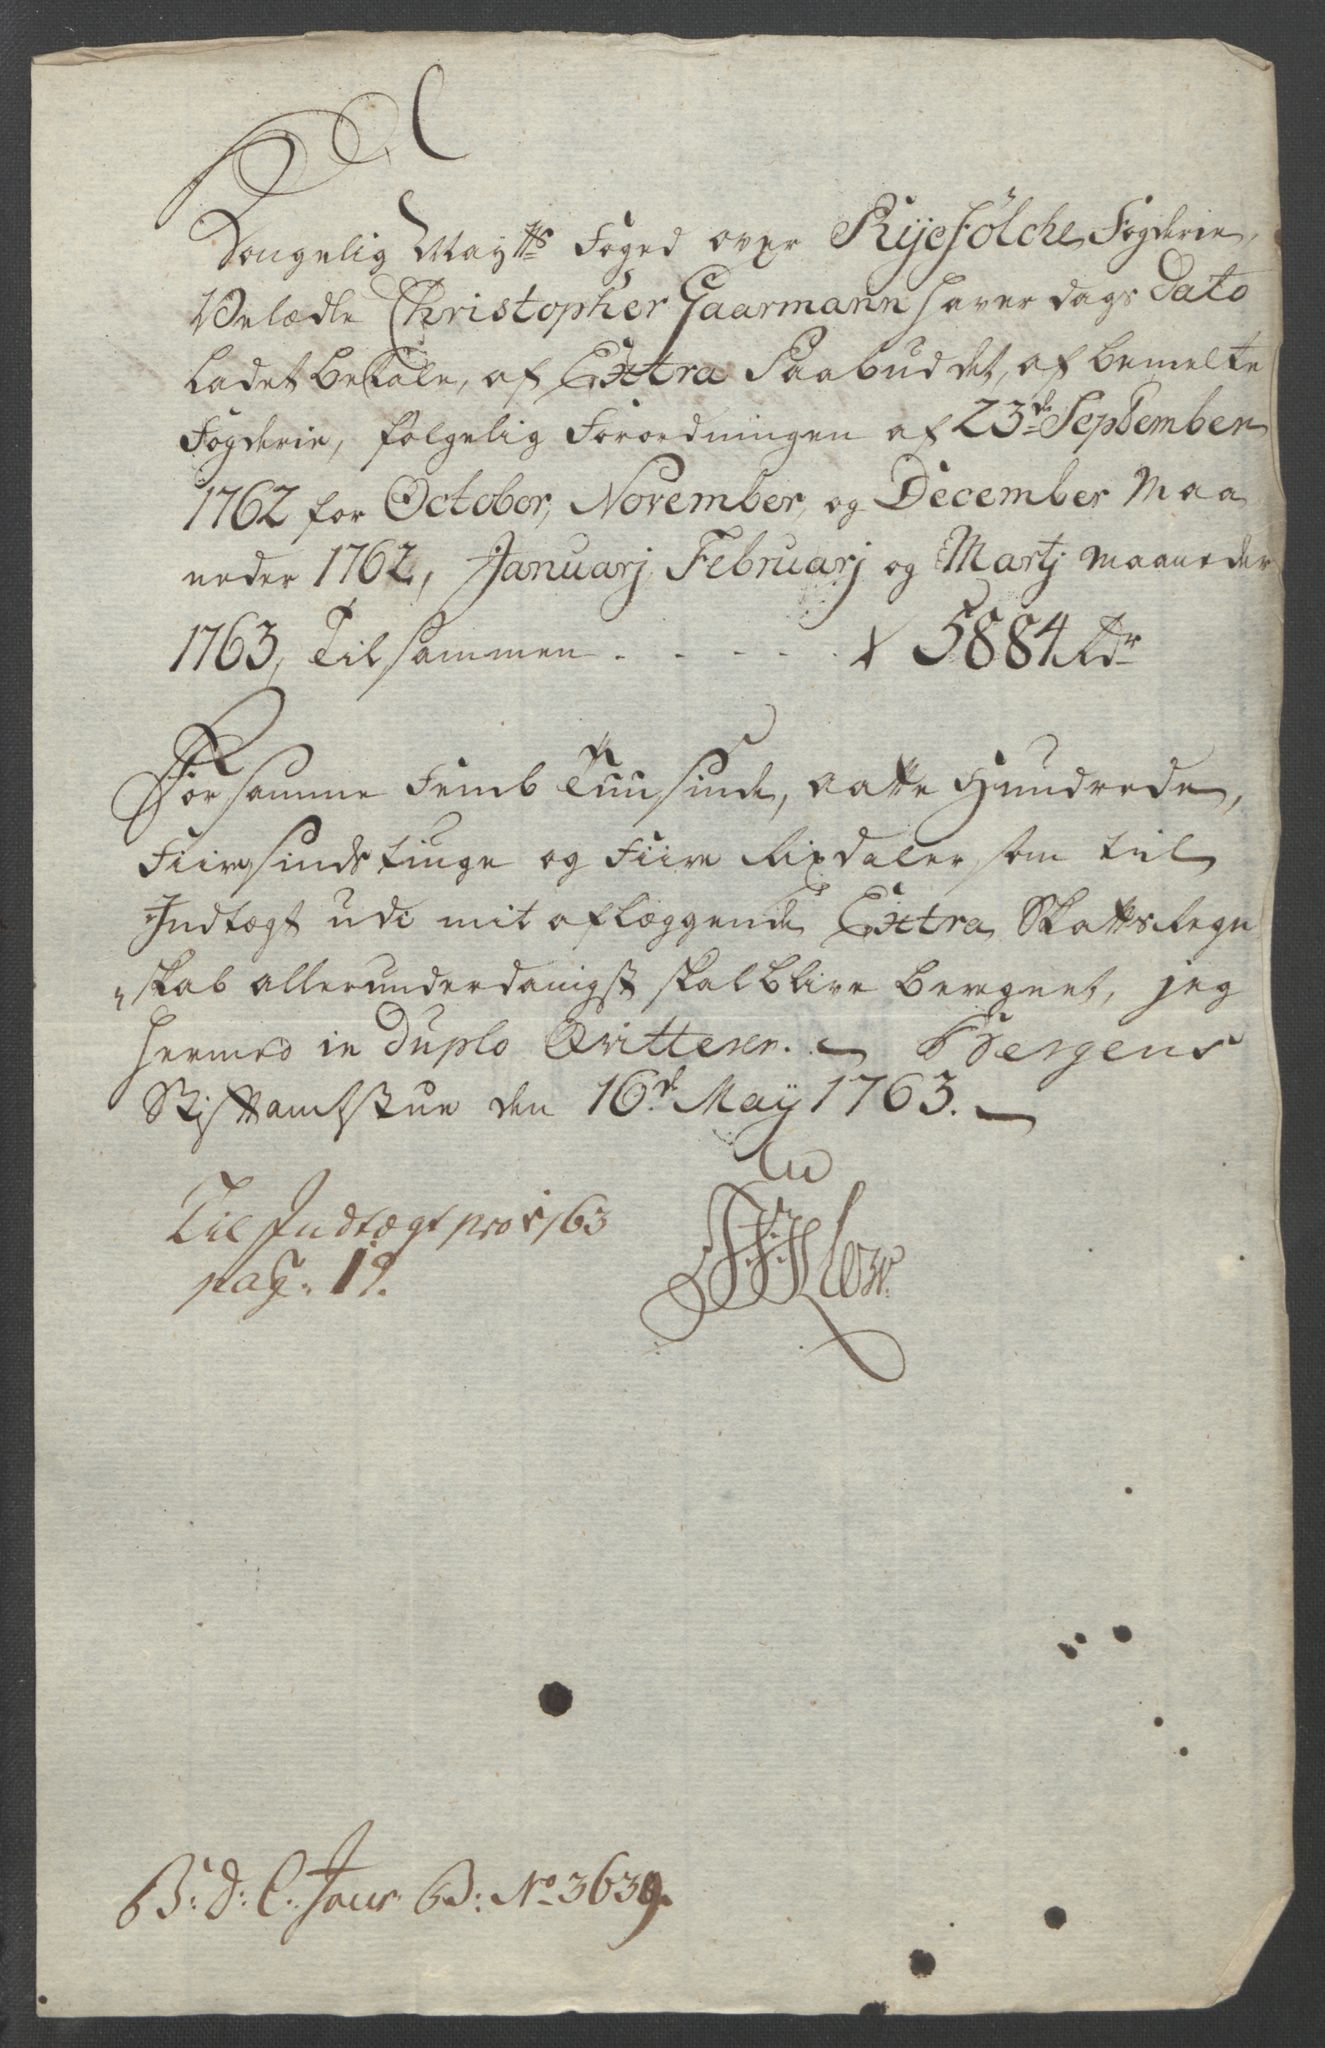 Kongelig May:tts Foged over Ryefölche Fogderie,
Velædle Christopher Gaarmann haver dags dato
ladet betale, af Extra Paabuddet, af bemelte
Fogderie, følgelig Forordningen af 23de September
1762 for October, November, og December Maa
neder 1762, Januarj Februarj og Martj Maaneder
1763, Tilsammen . . . . . 5884 Rdr
For samme Femb Tuusinde, aatte Hundrede,
Fiiresindstiuge og Fiire Rixdaler, som til
Indtægt udi mit aflæggende Extra Skatts Regn
skab allerunderdanigst skal blive beregnet, jeg
hermed in Duplo Qvitterer. Bergens
Stiftamtstue den 16de May 1763.
Til Indtægt pro 1763
pag. 19.
B: d: C: Jour B: No 3639.